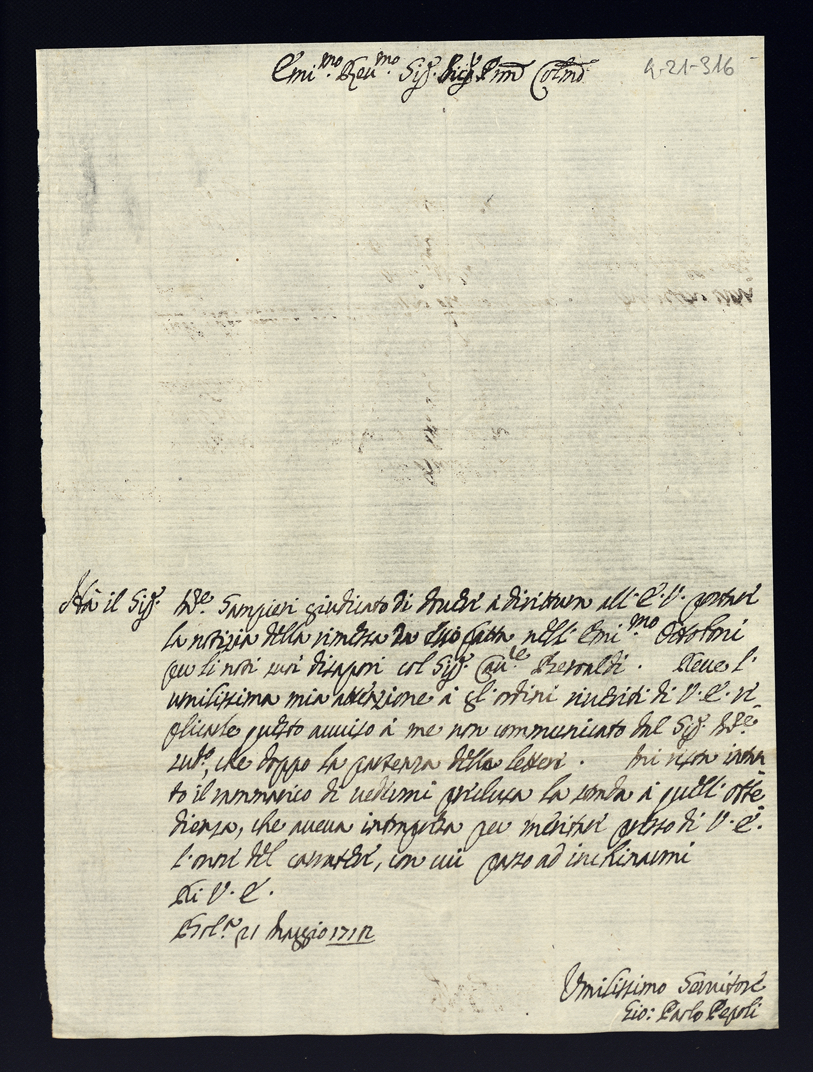 Emi.mo Reu.mo Sig.r Sig.r Pron Colmo
4-21-316
Hà il Sig.r M.se Sampieri giudicato di douer à dirittura all' E. V. portare
la notizia della rimessa da esso fatta nell' Emi.mo Ottoboni
per li noti suoi disapori col Sig.r Cau.re Beroaldi. Deue l'
umilissima mia attenzione à gl' ordini riueriti di V. E. re-
plicarle questo auuiso à me non communicato dal Sig.r M.se
sud.o, che doppo la partenza delle lettere. Mi resta intan-
to il rammarico di vedermi preclusa la strada à quell' obbe-
dienza, che aueua intrapresa per meritare presso di V. E.
l' onore del carattere, con cui passo ad inchinarmi
Di V. E.
Bol.a 21 Maggio 1712
Vmilissimo Seruitore
Gio: Paolo Pepoli